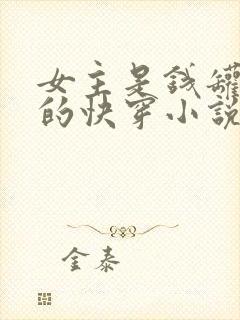 女主是钱罐
的快穿小说
金泰